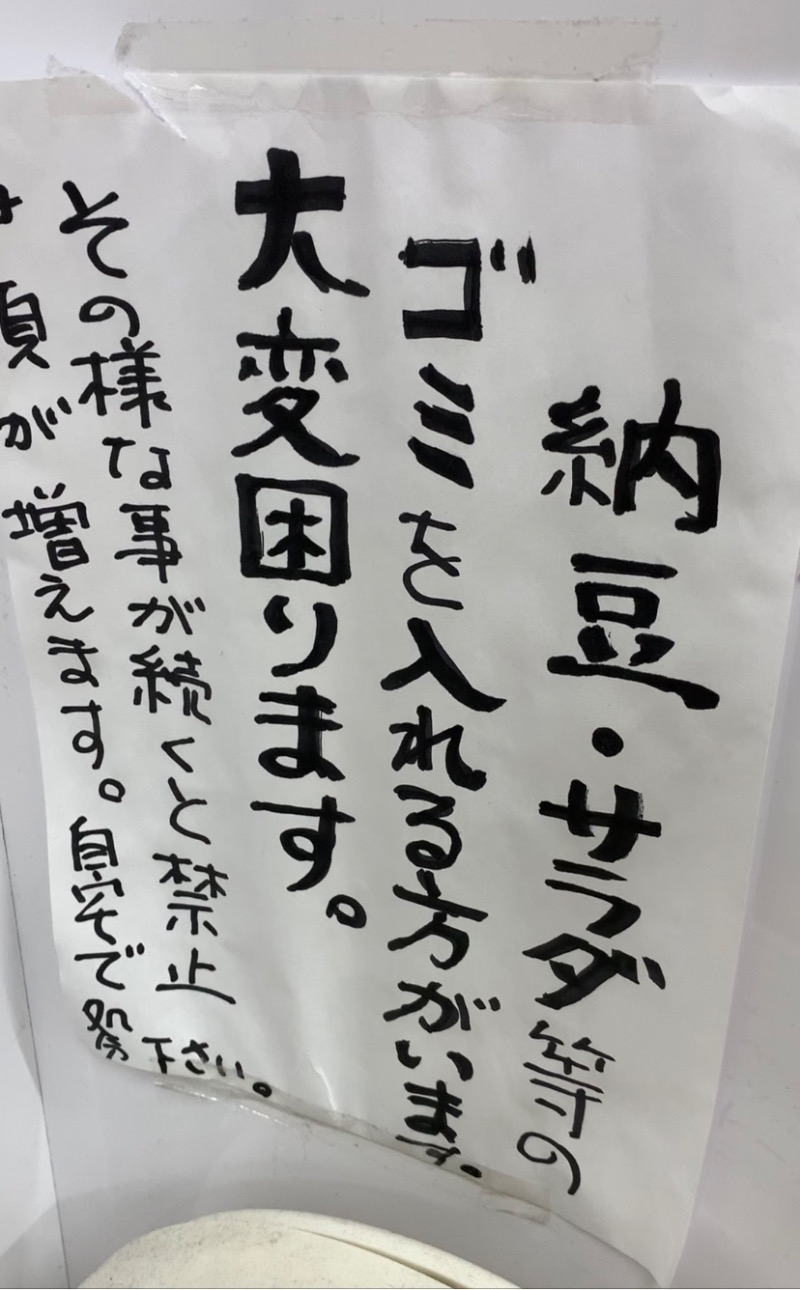 納豆・サラダ等の
ゴミを入れる方がいます。
大変困ります。
その様な事が続くと禁止
頃が増えます。自宅で
下さい。